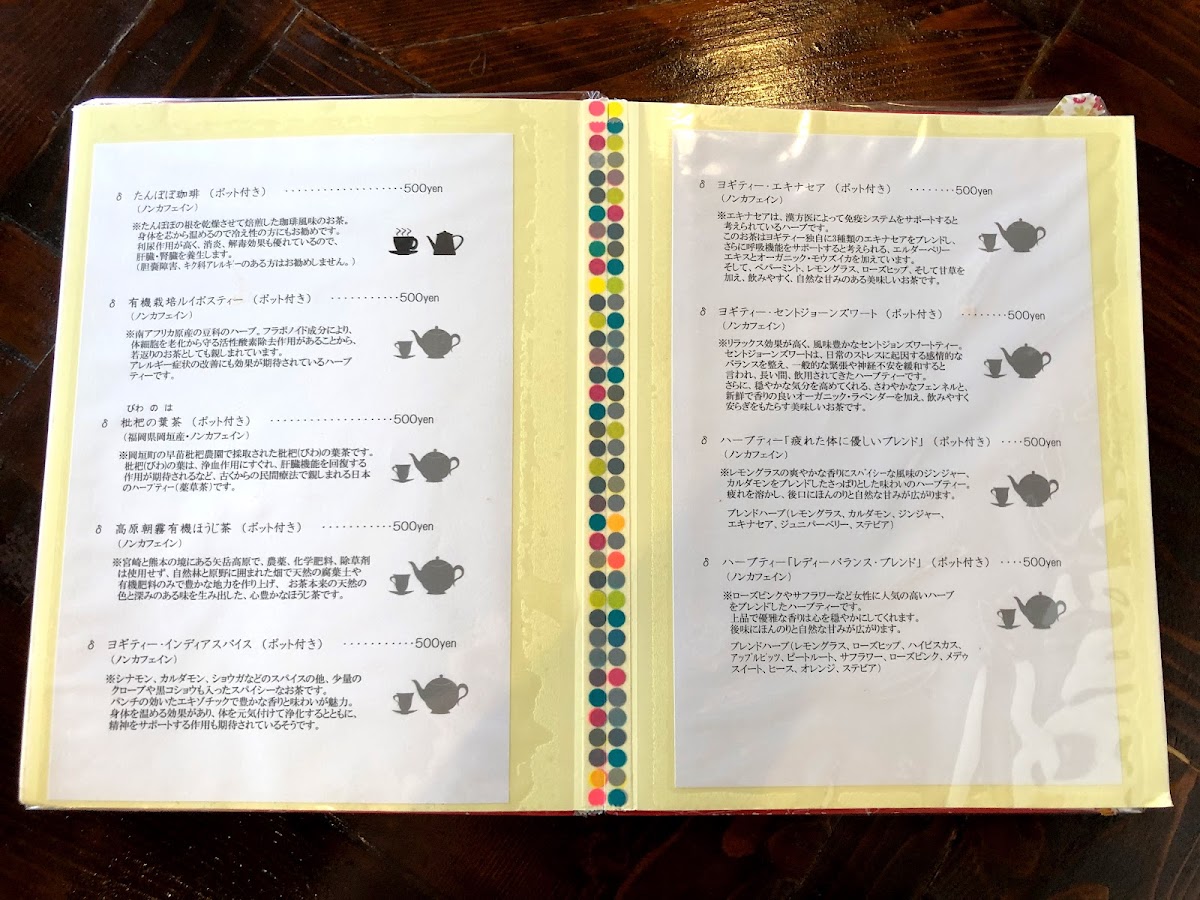 δ たんぽぽ珈琲 (ポット付き) ‥‥‥‥‥‥‥500yen
(ノンカフェイン)
※たんぽぽの根を乾燥させて焙煎した珈琲風味のお茶。
身体を芯から温めるので冷え性の方にもお勧めです。
利尿作用が高く、消炎、解毒効果も優れているので、
肝臓・腎臓を養生します。
(胆嚢障害、キク科アレルギーのある方はお勧めしません。)
δ 有機栽培ルイボスティー (ポット付き) ‥‥‥‥500yen
(ノンカフェイン)
※南アフリカ原産の豆科のハーブ。フラボノイド成分により、
体細胞を老化から守る活性酸素除去作用があることから、
若返りのお茶としても親しまれています。
アレルギー症状の改善にも効果が期待されているハーブ
ティーです。
びわ の は
δ 枇杷の葉茶 (ポット付き) ‥‥‥‥‥‥‥500yen
(福岡県岡垣産・ノンカフェイン)
※岡垣町の早苗枇杷農園で採取された枇杷(びわ)の葉茶です。
枇杷(びわ)の葉は、浄血作用にすぐれ、肝臓機能を回復する
作用が期待されるなど、古くからの民間療法で親しまれる日本
のハーブティー(薬草茶)です。
δ 高原朝霧有機ほうじ茶 (ポット付き) ‥‥‥‥500yen
(ノンカフェイン)
※宮崎と熊本の境にある矢岳高原で、農薬、化学肥料、除草剤
は使用せず、自然林と原野に囲まれた畑で天然の腐葉土や
有機肥料のみで豊かな地力を作り上げ、 お茶本来の天然の
色と深みのある味を生み出した、心豊かなほうじ茶です。
δ ヨギティー・インディアスパイス (ポット付き) ‥‥‥‥500yen
(ノンカフェイン)
※シナモン、カルダモン、ショウガなどのスパイスの他、少量の
クローブや黒コショウも入ったスパイシーなお茶です。
パンチの効いたエキゾチックで豊かな香りと味わいが魅力。
身体を温める効果があり、体を元気付けて浄化するとともに、
精神をサポートする作用も期待されているそうです。
δ ヨギティー・エキナセア (ポット付き) ‥‥‥500yen
(ノンカフェイン)
※エキナセアは、漢方医によって免疫システムをサポートすると
考えられているハーブです。
このお茶はヨギティー独自に3種類のエキナセアをブレンドし、
さらに呼吸機能をサポートすると考えられる、エルダーベリー
エキスとオーガニック・モウズイカを加えています。
そして、ペパーミント、レモングラス、ローズヒップ、そして甘草を
加え、飲みやすく、自然な甘みのある美味しいお茶です。
δ ヨギティー・セントジョーンズワート (ポット付き) ‥‥‥500yen
(ノンカフェイン)
※リラックス効果が高く、風味豊かなセントジョンズワートティー。
セントジョーンズワートは、日常のストレスに起因する感情的な
バランスを整え、一般的な緊張や神経不安を緩和すると
言われ、長い間、飲用されてきたハーブティーです。
さらに、穏やかな気分を高めてくれる、さわやかなフェンネルと、
新鮮で香りの良いオーガニック・ラベンダーを加え、飲みやすく
安らぎをもたらす美味しいお茶です。
δ ハーブティー「疲れた体に優しいブレンド」 (ポット付き) ‥‥500yen
(ノンカフェイン)
※レモングラスの爽やかな香りにスパイシーな風味のジンジャー、
カルダモンをブレンドしたさっぱりとした味わいのハーブティー。
疲れを溶かし、後口にほんのりと自然な甘みが広がります。
ブレンドハーブ(レモングラス、カルダモン、ジンジャー、
エキナセア、ジュニパーベリー、ステビア)
δ ハーブティー「レディーバランス・ブレンド」 (ポット付き) ‥‥500yen
(ノンカフェイン)
※ローズピンクやサフラワーなど女性に人気の高いハーブ
をブレンドしたハーブティーです。
上品で優雅な香りは心を穏やかにしてくれます。
後味にほんのりと自然な甘みが広がります。
ブレンドハーブ(レモングラス、ローズヒップ、ハイビスカス、
アップルピッツ、ビートルート、サフラワー、ローズピンク、メドウ
スイート、ヒース、オレンジ、ステビア)